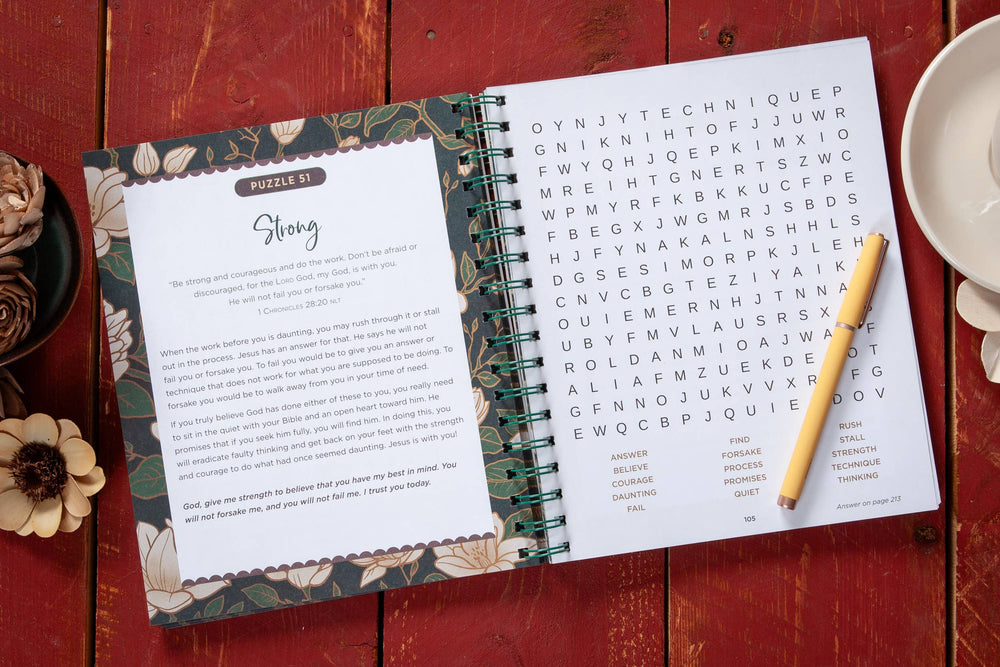 PUZZLE 51
Strong
“Be strong and courageous and do the work. Don’t be afraid or
discouraged, for the LORD God, my God, is with you.
He will not fail you or forsake you.”
1 CHRONICLES 28:20 NLT
When the work before you is daunting, you may rush through it or stall
out in the process. Jesus has an answer for that. He says he will not
fail you or forsake you. To fail you would be to give you an answer or
technique that does not work for what you are supposed to be doing. To
forsake you would be to walk away from you in your time of need.
If you truly believe God has done either of these to you, you really need
to sit in the quiet with your Bible and an open heart toward him. He
promises that if you seek him fully, you will find him. In doing this, you
will eradicate faulty thinking and get back on your feet with the strength
and courage to do what had once seemed daunting. Jesus is with you!
God, give me strength to believe that you have my best in mind. You
will not forsake me, and you will not fail me. I trust you today.
O Y N J Y T E C H N I Q U E P
G N I K N I H T O F J J U W R
F W Y Q H J Q E P K I M X I O
M R E I H T G N E R T S Z W C
W P M Y R F K B K K U C F P E
F B E G X J W G M R J S B D S
H J F Y N A K A L N S H H L S
D G S E S I M O R P K J L E H
C N V C B G T E Z I Y A I K
O U I E M E R N H J T N N A
U B Y F M V L A U S R S X
R O L D A N M I O A J W A F
A L I A F M Z U E K D E T
G F N N O J U K V V X R F G
E W Q C B P J Q U I E D O V
ANSWER
BELIEVE
COURAGE
DAUNTING
FAIL
FIND
FORSAKE
PROCESS
PROMISES
QUIET
RUSH
STALL
STRENGTH
TECHNIQUE
THINKING
105
Answer on page 213